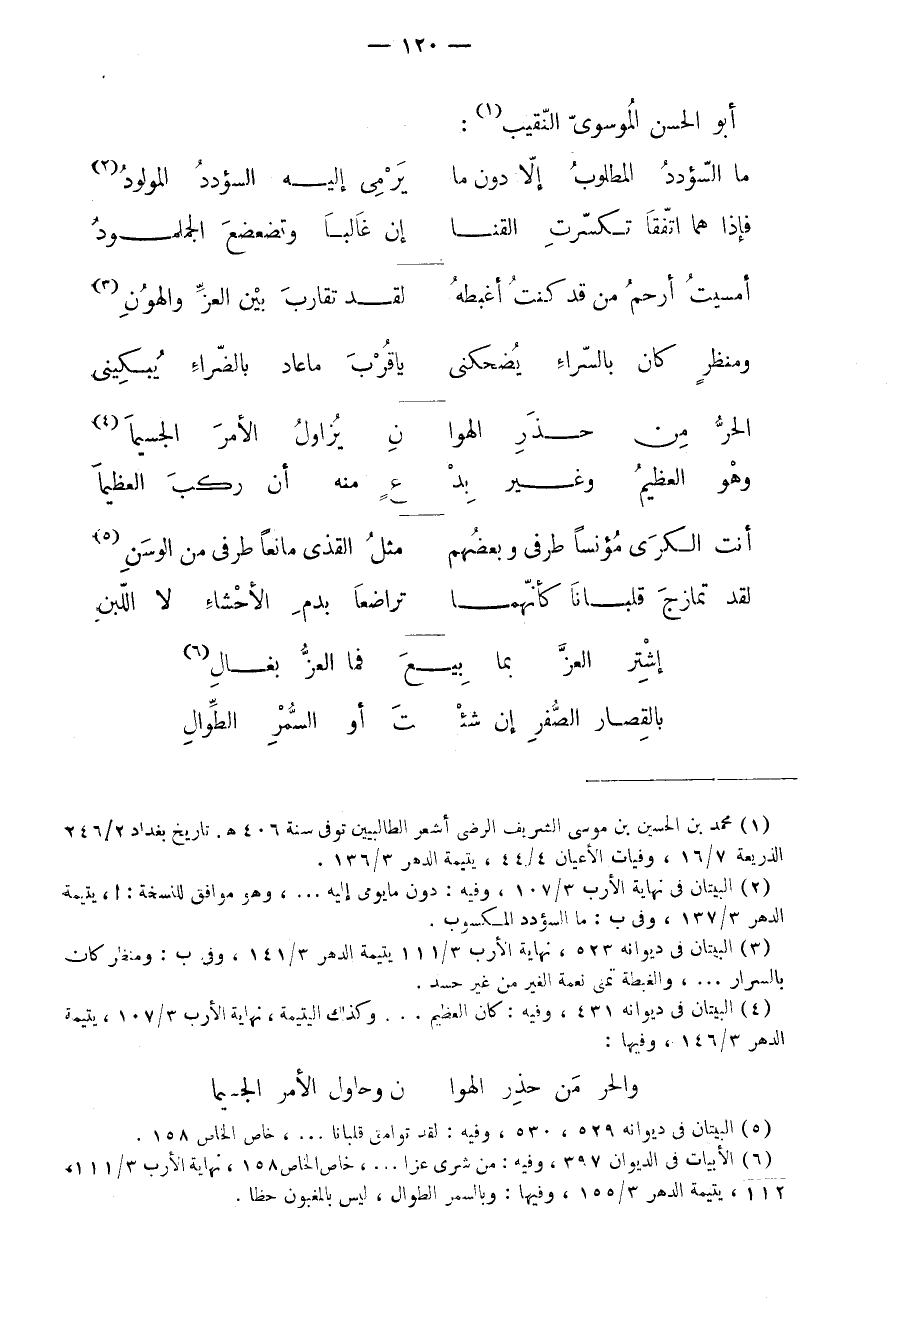 — ١٢٠ —
أبو الحسن المُوسوىّ النّقيب(١) :
ما السّؤددُ المطلوبُ إلّا دون ما يَرْمِى إليـــه السؤددُ المولودُ(٢)
فإذا هما اتّفقَا تـكسّرتِ القنـــا إن غَالبـاَ وتضعضعَ الجلمـــودُ
أمسيتُ أرحمُ من قد كنتُ أغبطهُ لقـــد تقاربَ بيْن العزِّ والهوْنِ(٣)
ومنظرٍ كان بالسّراءِ يُضحكنى ياقُرْبَ ماعاد بالضّراءِ يُبـكِينى
الحرُّ مِن حـــذَرِ الهوا نِ يُزاولُ الأمرَ الجسيماَ(٤)
وهْو العظيمُ وغـــير بِدْ عٍ منه أن ركبَ العظيماَ
أنت الـكرَى مُؤنساً طرفى وبعضُهم مثلُ القذى مانعاً طرفى من الوسَنِ(٥)
لقد تمازجَ قلبـــاناَ كأنّهمـــا تراضعاَ بدمِ الأحْشاءِ لا اللّبنِ
إشْتِر العزَّ بما بِيـــعَ فما العزُّ بغـــالِ(٦)
بالقِصار الصُّفرِ إن شئْ تَ أو السُّمْرِ الطِّوالِ
(١) محمد بن الحسين بن موسى الشريف الرضى أشعر الطالبيين توفى سنة ٤٠٦ ه. تاريخ بغداد ٢٤٦/٢
الذريعة ١٦/٧ ، وفيات الأعيان ٤٤/٤ ، يتيمة الدهر ١٣٦/٣ .
(٢) البيتان فى نهاية الأرب ١٠٧/٣ ، وفيه : دون مايومى إليه ... ، وهو موافق للنسخة : ا ، يتيمة
الدهر ١٣٧/٣ ، وفى ب : ما السؤدد المـكسوب .
(٣) البيتان فى ديوانه ٥٢٣ ، نهاية الأرب ١١١/٣ يتيمة الدهر ١٤١/٣ ، وفى ب : ومنظر كان
بالسرار ... ، والغبطة تمنى نعمة الغير من غير حسد .
(٤) البيتان فى ديوانه ٤٣١ ، وفيه : كان العظيم ... وكذلك اليتيمة ، نهاية الأرب ١٠٧/٣ ، يتيمة
الدهر ١٤٦/٣ ، وفيها :
والحر مَن حذِر الهوا ن وحاول الأمر الجسيما
(٥) البيتان فى ديوانه ٥٢٩ ، ٥٣٠ ، وفيه : لقد توامق قلبانا ... ، خاص الخاص ١٥٨ .
(٦) الأبيات فى الديوان ٣٩٧ ، وفيه : من شرى عزا ... ، خاص الخاص ١٥٨ ، نهاية الأرب ١١١/٣،
١١٢ ، يتيمة الدهر ١٥٥/٣ ، وفيها : وبالسمر الطوال ، ليس بالمغبون حظا .